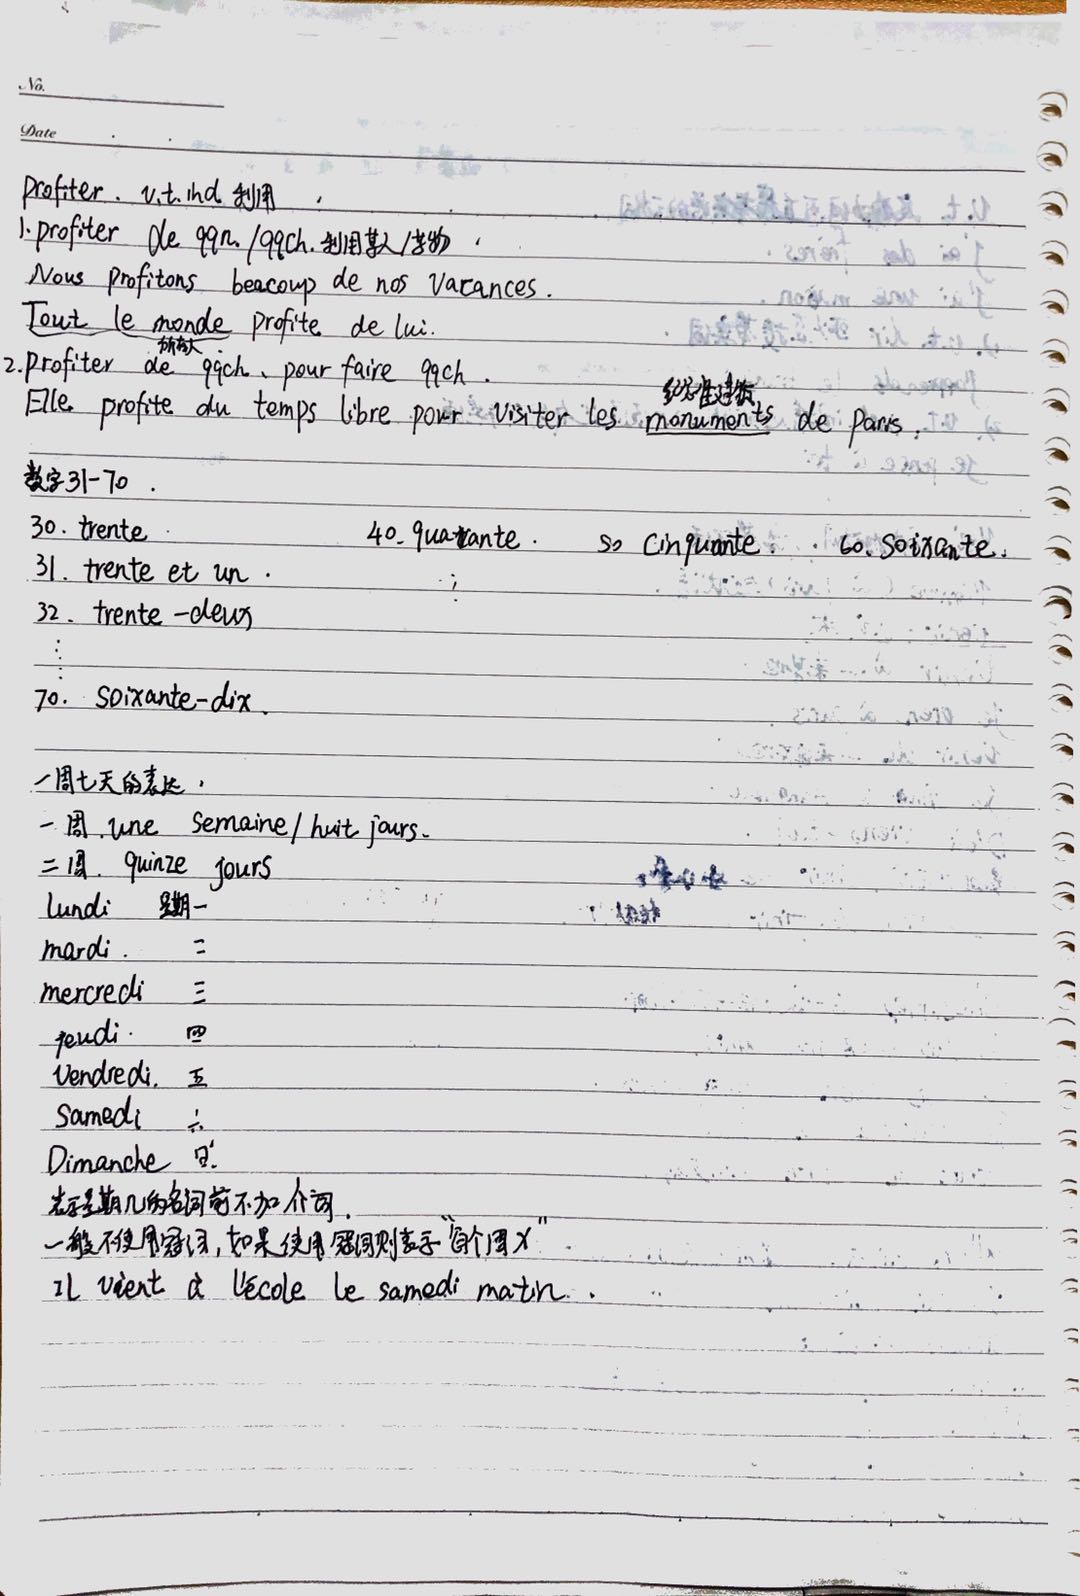 No.
Date
profiter. v.t.ind 利用
1. profiter de qqn./qqch. 利用某人/某物
Nous profitons beacoup de nos vacances.
Tout le monde profite de lui.
所有人
2. profiter de qqch、pour faire qqch.
纪念性建筑
Elle profite du temps libre pour visiter les monuments de Paris.
数字31-70.
30. trente 40. quarante. 50 cinquante. 60. soixante.
31. trente et un.
32. trente-deux
70. soixante-dix.
一周七天的表达.
一周. une semaine/huit jours.
二周. quinze jours
lundi 星期一
mardi. 二
mercredi 三
jeudi. 四
Vendredi. 五
Samedi 六
Dimanche 日.
表示星期几的名词前不加介词.
一般不使用冠词,如果使用冠词则表示"每个周X"
Il vient à l'école le samedi matin.